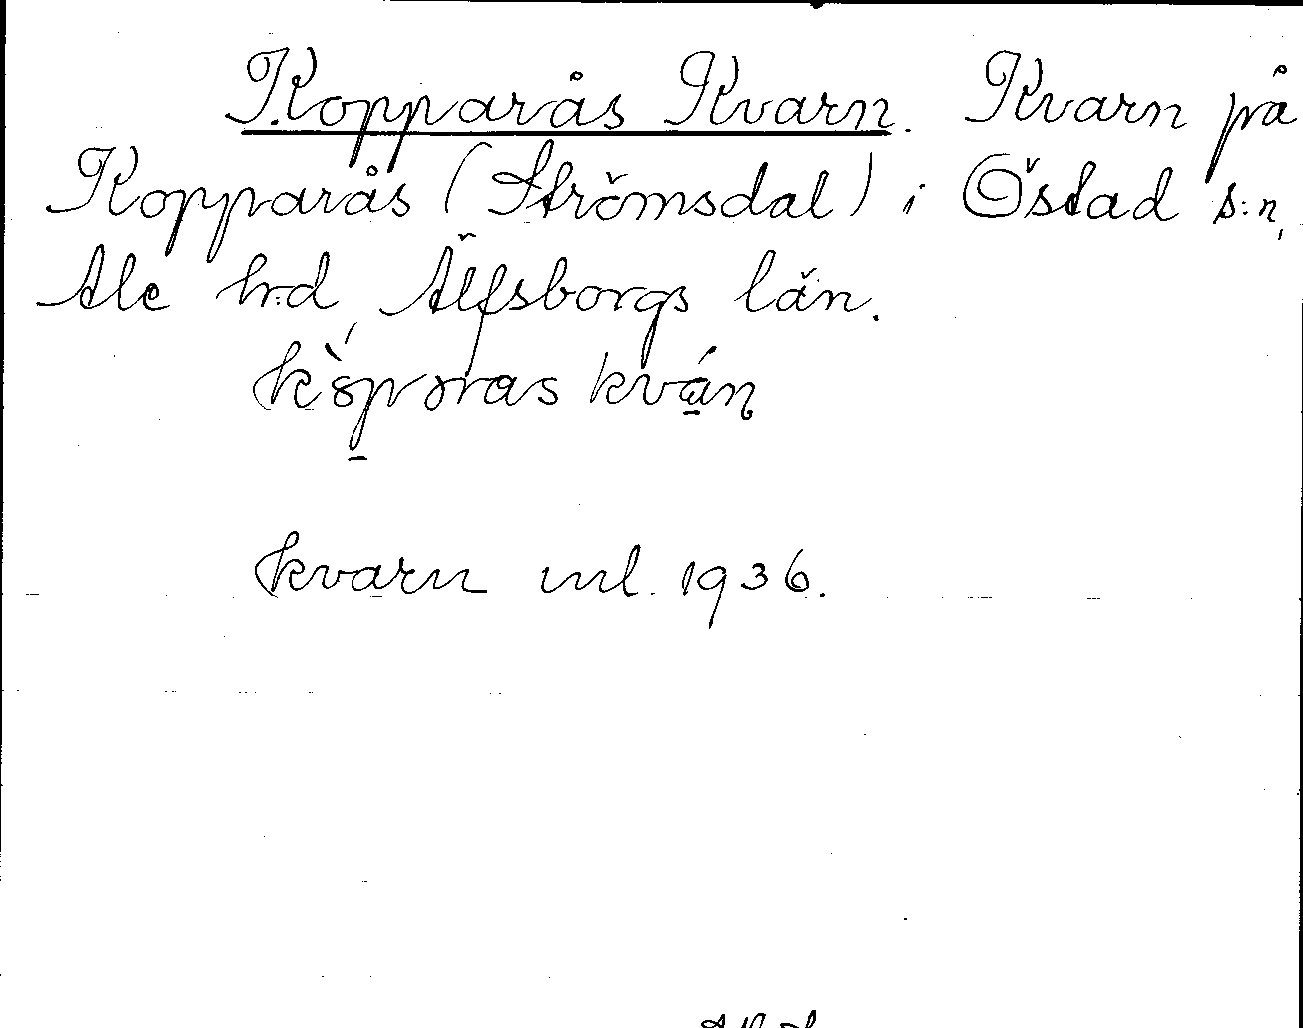 Kopparås Kvarn. Kvarn på
Kopparås (Strömsdal) i Östad s:n,
Ale h:d, Älfsborgs län.
kvarn inl. 1936.